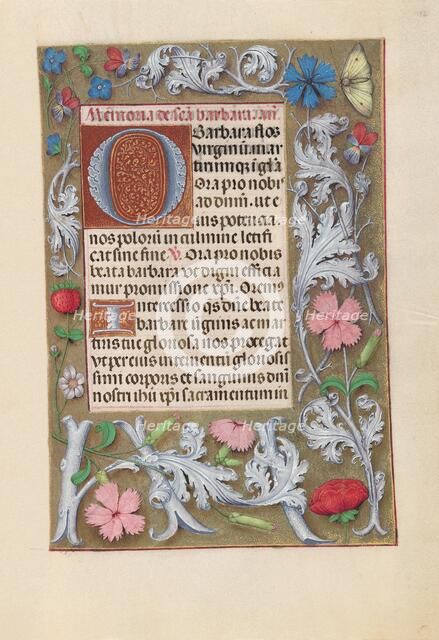 Memoria de sc̃a barbara
O Barbara flos
Virginũ mar
tirumq; gl̃a
Ora pro nobis
ad dnm̃. ut e
ius potencia
nos polorũ in culmine letifi
cat sine fine ℣. Ora pro nobis
beata barbara Ut digni effici a
mur promissione xpĩ. Oremꝰ
Intercessio q̃s dñe beate
barbare uirginis ac mar
tiris tue gloriosa nos protegat
ut per eius interuentũ gloriosis
simi corporis et sanguinis dnĩ
nostri ihũ xpĩ sacramentum in
Heritage
Heritage
Heritage
Heritage
Heritage
Heritage
Heritage
Heritage